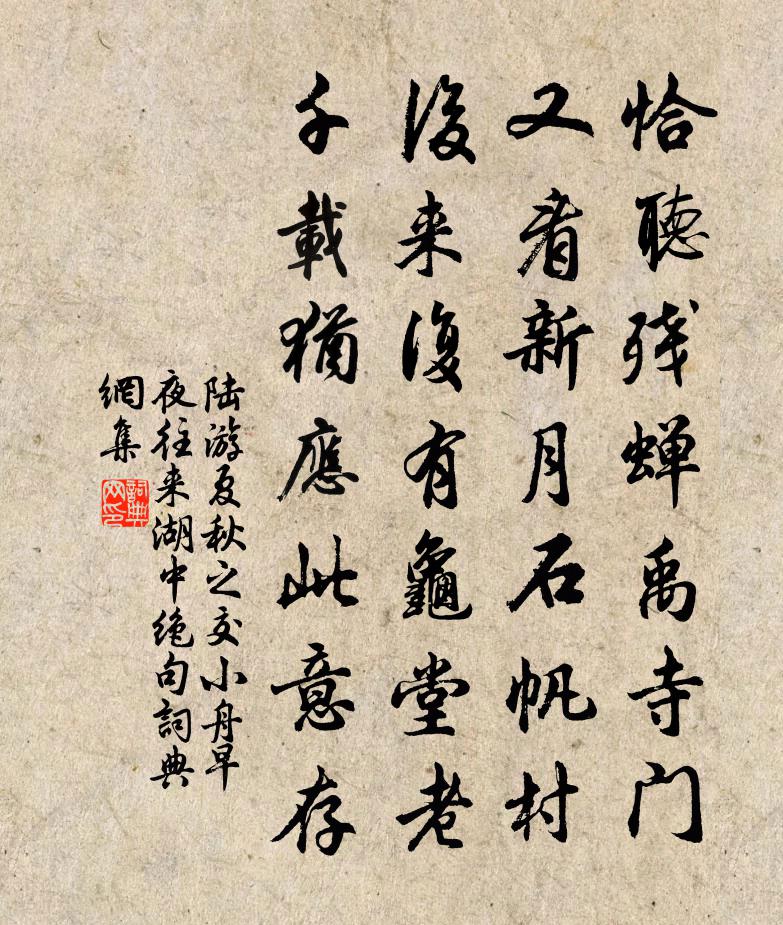 恰聴残蝉禹寺门
又看新月石帆村
後来復有龜堂老
千載猶應此意存
陆游夏秋之交小舟早
夜往来湖中绝句詞典
網集
詞典网印